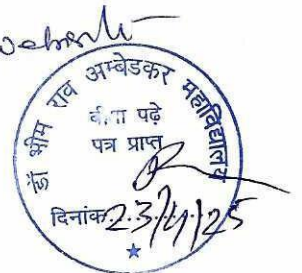 डॉ भीम राव अम्बेडकर महाविद्यालय
बिना पढ़े
पत्र प्राप्त
दिनांक 23/4/25